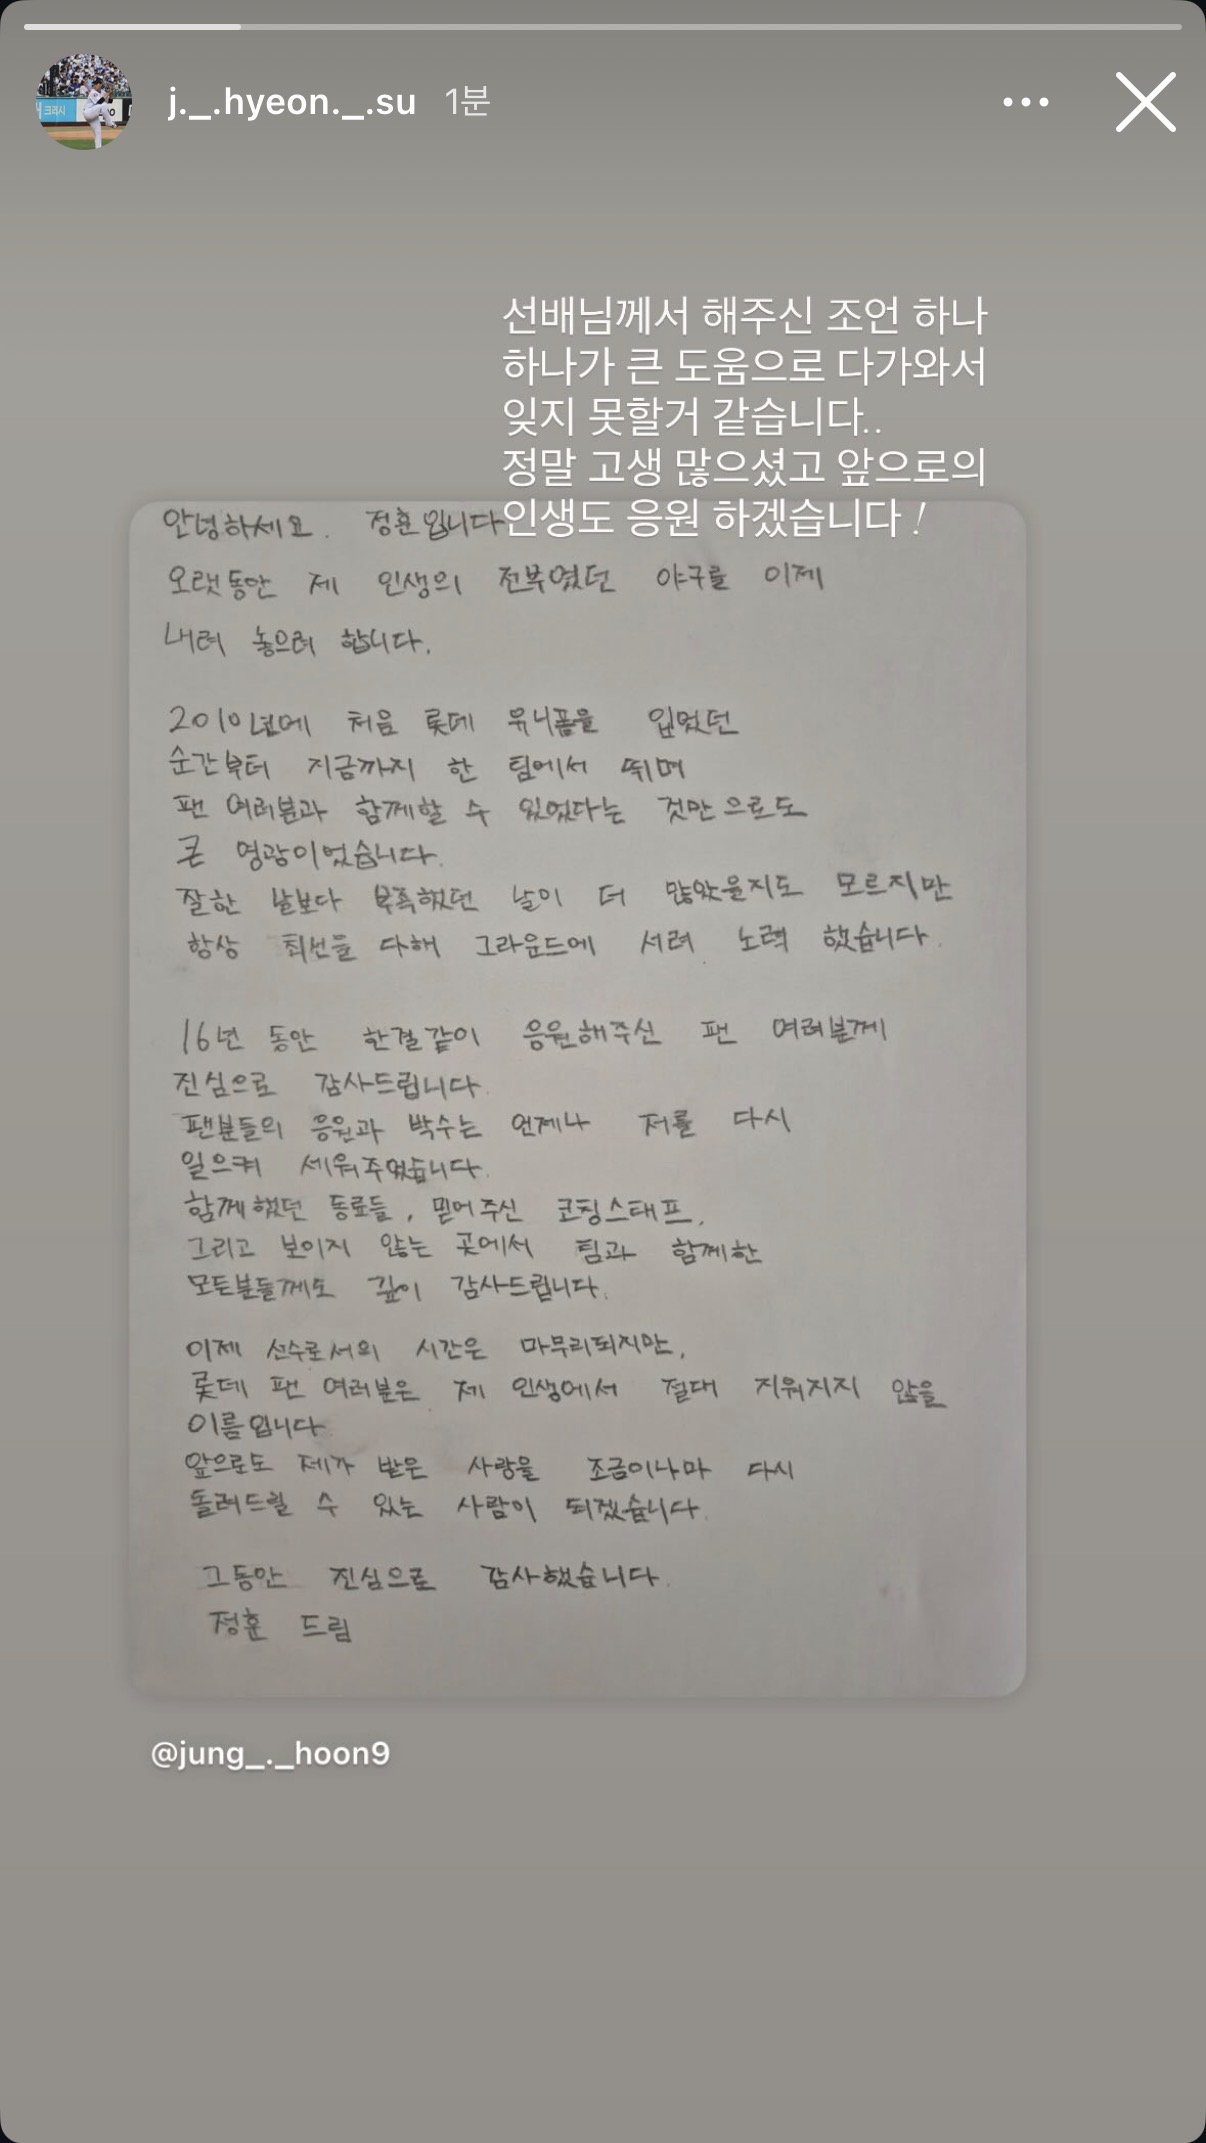 j._.hyeon._.su 1분
선배님께서 해주신 조언 하나
하나가 큰 도움으로 다가와서
잊지 못할거 같습니다..
정말 고생 많으셨고 앞으로의
인생도 응원 하겠습니다 !
안녕하세요. 정훈입니다
오랫동안 제 인생의 전부였던 야구를 이제
내려 놓으려 합니다.
2010년에 처음 롯데 유니폼을 입었던
순간부터 지금까지 한 팀에서 뛰며
팬 여러분과 함께할 수 있었다는 것만으로도
큰 영광이었습니다.
잘한 날보다 부족했던 날이 더 많았을지도 모르지만
항상 최선을 다해 그라운드에 서려 노력 했습니다.
16년 동안 한결같이 응원해주신 팬 여러분께
진심으로 감사드립니다.
팬분들의 응원과 박수는 언제나 저를 다시
일으켜 세워주었습니다.
함께했던 동료들, 믿어주신 코칭스태프,
그리고 보이지 않는 곳에서 팀과 함께한
모든분들께도 깊이 감사드립니다.
이제 선수로서의 시간은 마무리되지만,
롯데 팬 여러분은 제 인생에서 절대 지워지지 않을
이름입니다
앞으로도 제가 받은 사랑을 조금이나마 다시
돌려드릴 수 있는 사람이 되겠습니다.
그동안 진심으로 감사했습니다.
정훈 드림
@jung_._hoon9